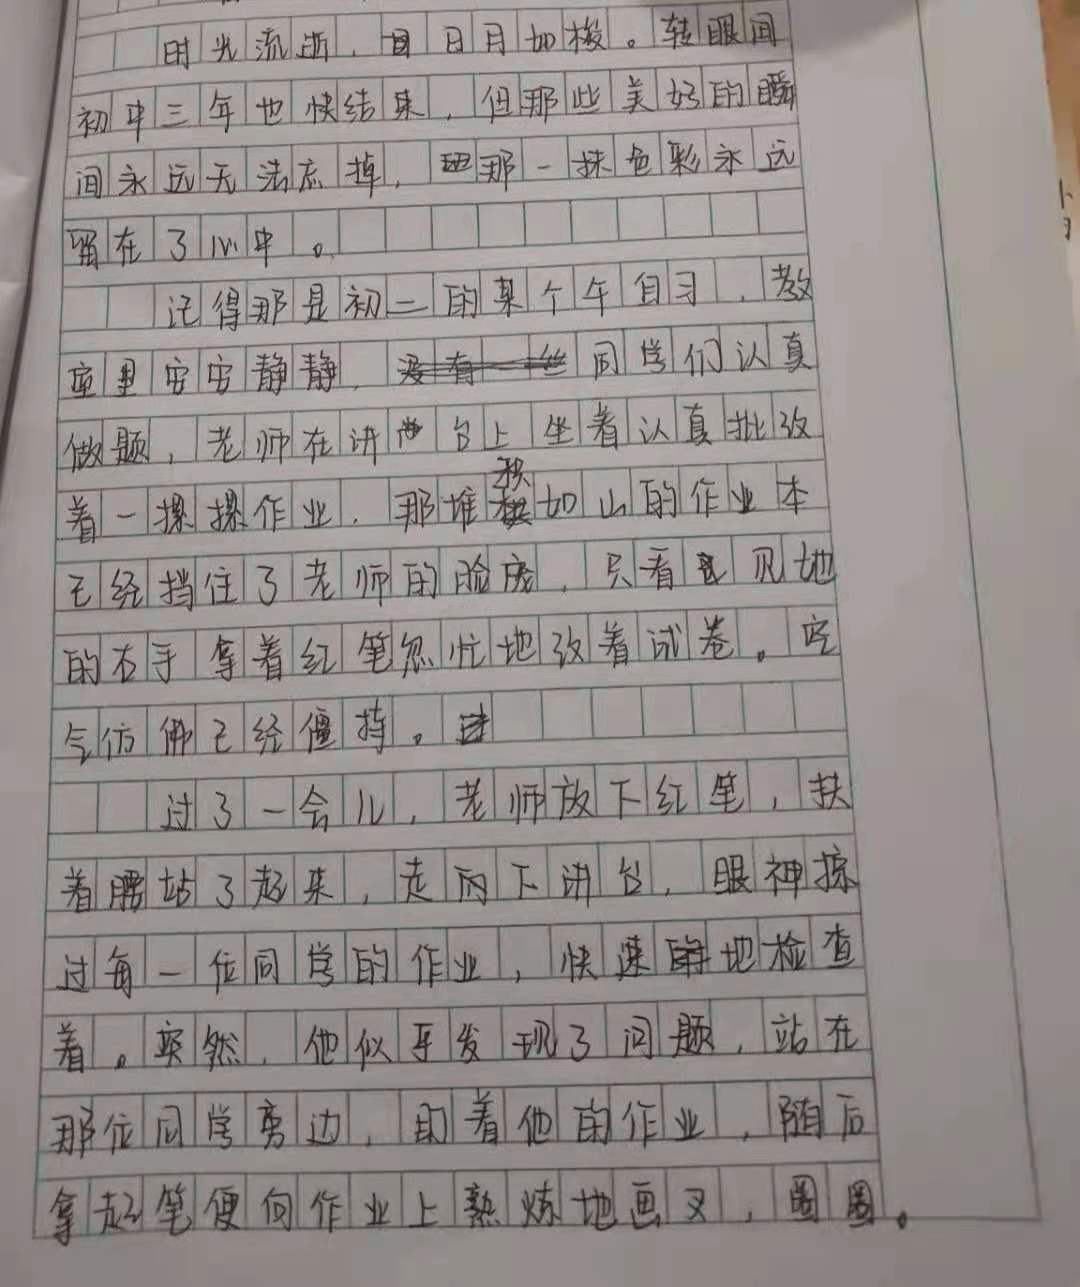 时光流逝，日月如梭。转眼间
初中三年也快结束，但那些美好的瞬
间永远无法忘掉，那一抹色彩永远
留在了心中。
记得那是初二的某个午自习，教
室里安安静静，同学们认真
做题，老师在讲台上坐着认真批改
着一摞摞作业，那堆积如山的作业本
已经挡住了老师的脸庞，只看见他
的右手拿着红笔忽忙地改着试卷。空
气仿佛已经僵持。
过了一会儿，老师放下红笔，扶
着腰站了起来，走下讲台，眼神掠
过每一位同学的作业，快速地检查
着。突然，他似乎发现了问题，站在
那位同学旁边，盯着他的作业，随后
拿起笔便向作业上熟炼地画叉，圈圈。